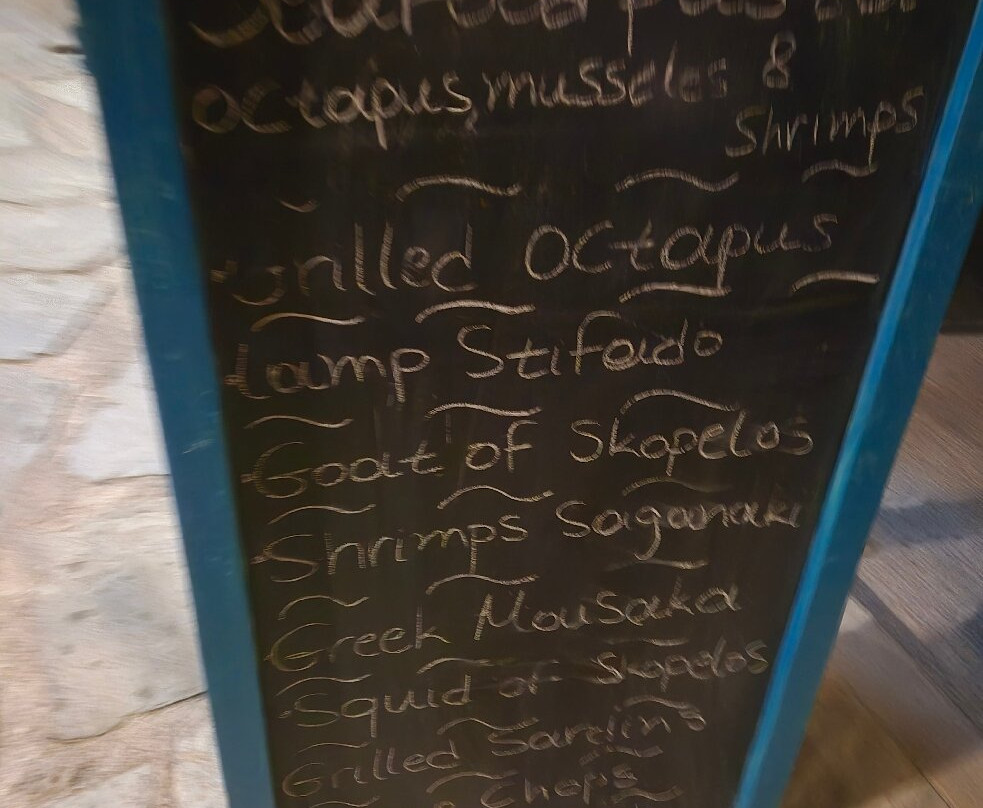 octapus, musseles &
Shrimps
Grilled octapus
Lamp Stifado
Goat of Skopelos
Shrimps Saganaki
Greek Mousaka
Squid of Skopelos
Grilled Sardins
Chef's